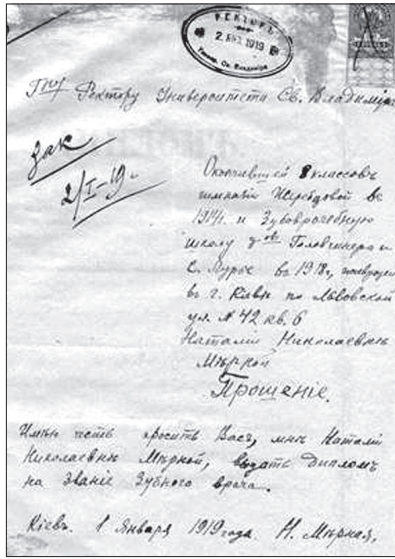 РЕКТОРЪ
2 ЯНВ. 1919
Универ. Св. Владиміра
Гну Ректору Университета Св. Владиміра
2/I-19 г
Окончившей 8 классовъ
гимназіи Жеребцовой въ
1914 г. и Зубоврачебную
школу д-овъ Головчинера и
С. Лурье въ 1918 г,
въ г. Кіевѣ по Львовской
ул. № 42 кв. 6
Наталіи Николаевны
Мѣрной
Прошеніе.
Имѣю честь просить Васъ, мнѣ Наталіи
Николаевнѣ Мѣрной, выдать дипломъ
на званіе Зубного врача.
Кіевъ. 1 Января 1919 года. Н. Мѣрная.